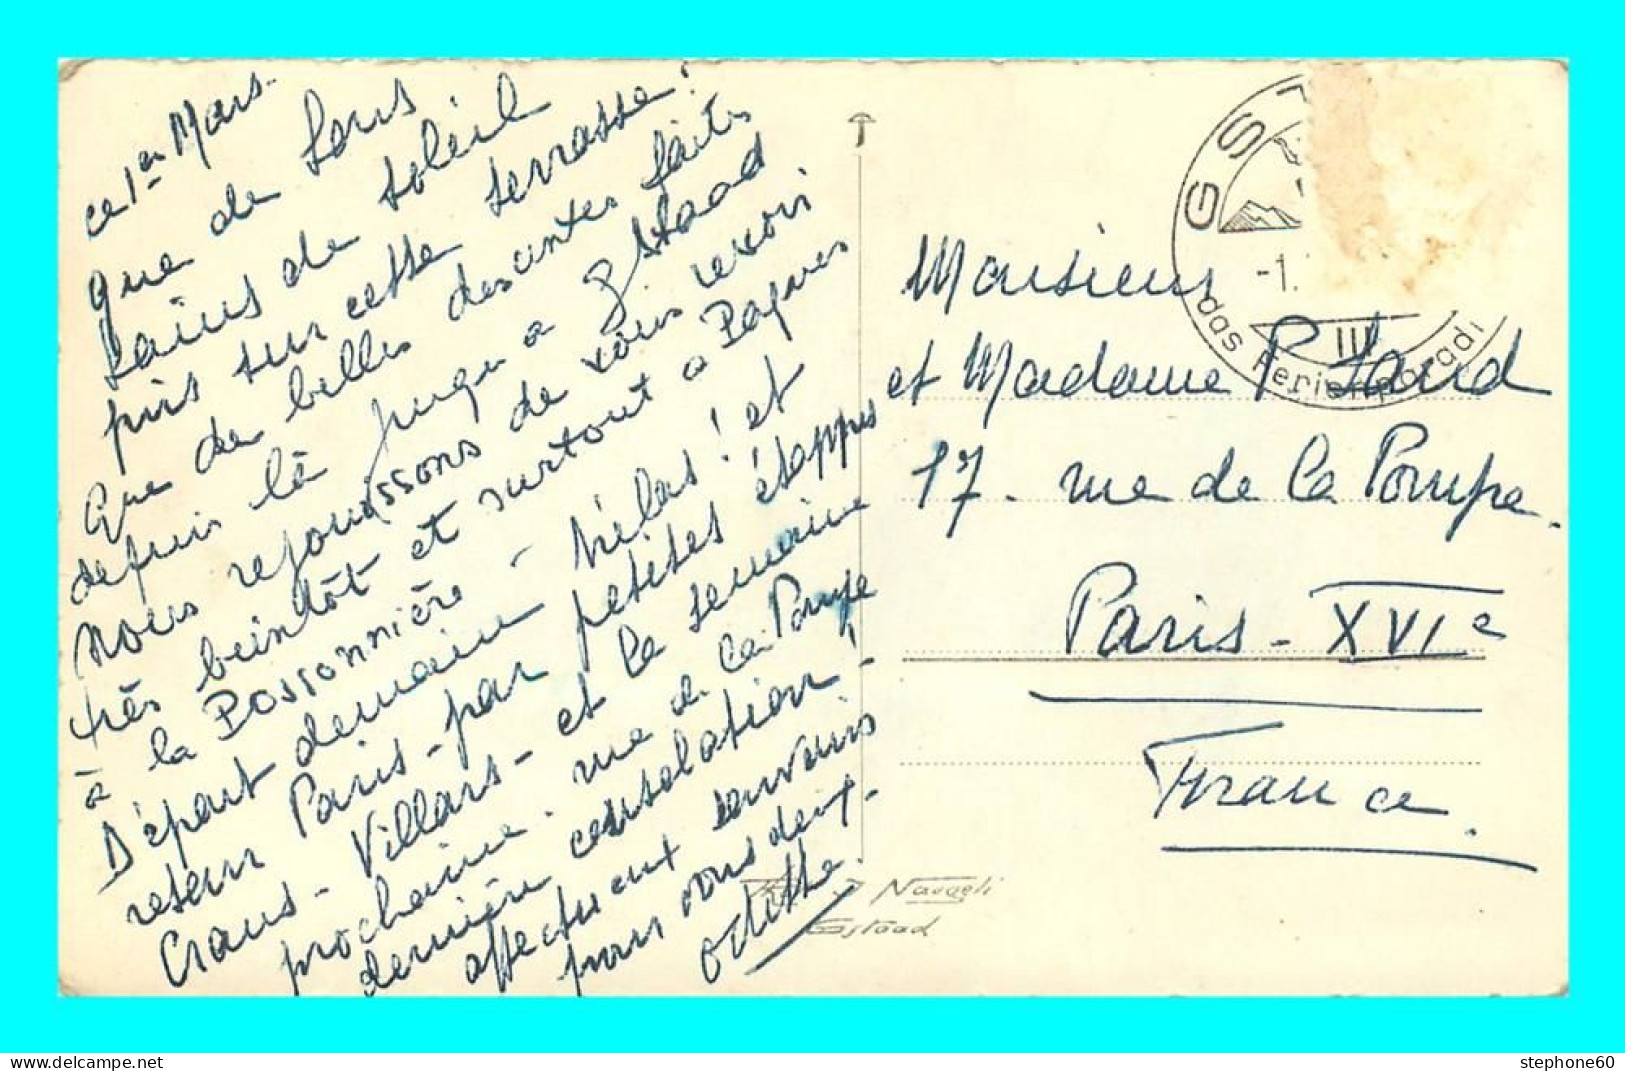 ce 1er Mars.
que de
bains de soleil
pris sur cette terrasse!
Que de belles descentes faites
depuis là jusqu'à Gstaad
Nous réjouissons de vous revoir
très bientôt et surtout à Pâques
à la Possonnière - hélas! et
Départ demain
retour Paris - par petites étappes
Crans - Villars - et la semaine
prochaine. rue de la Pompe
dernière consolation! -
affectueux souvenirs
pour vous deux -
Odette.
Monsieur
et Madame P.
17. rue de la Pompe.
Paris - XVIe
France.
GST
-1.
III
das Ferienparadi
Naegeli
Gstaad
stephone60